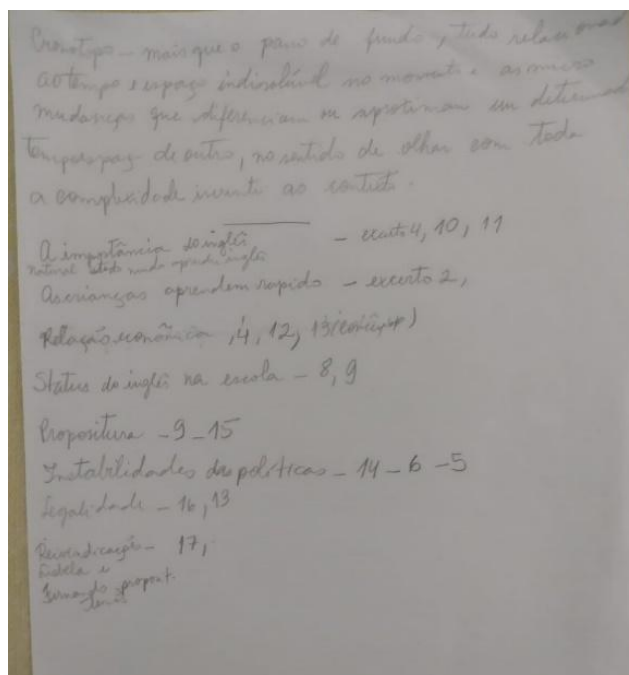 Cronotopo - mais que o pano de fundo, tudo relacionado
ao tempo e espaço indissolúvel no momento e as micro
mudanças que diferenciam ou aproximam um determinado
tempo espaço de outro, no sentido de olhar com toda
a complexidade ao contexto.
A importância do inglês - excerto 4, 10, 11
natural todo mundo aprender inglês
As crianças aprendem rapido - excerto 2,
Relação econômica, 4, 12, 13
Status do inglês na escola - 8, 9
Propositura - 9 - 15
Instabilidades das políticas - 14 - 6 - 5
Legalidade - 16, 13
Reivindicação - 17,
Fernando